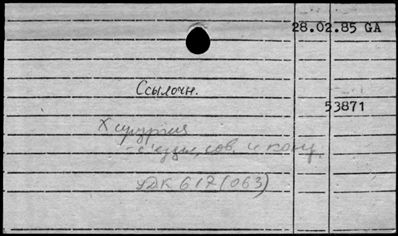 28.02.85 GA
Ссылочн.
53871
Хирургия
- съезды, сов. и конф.
УДК 617(063)